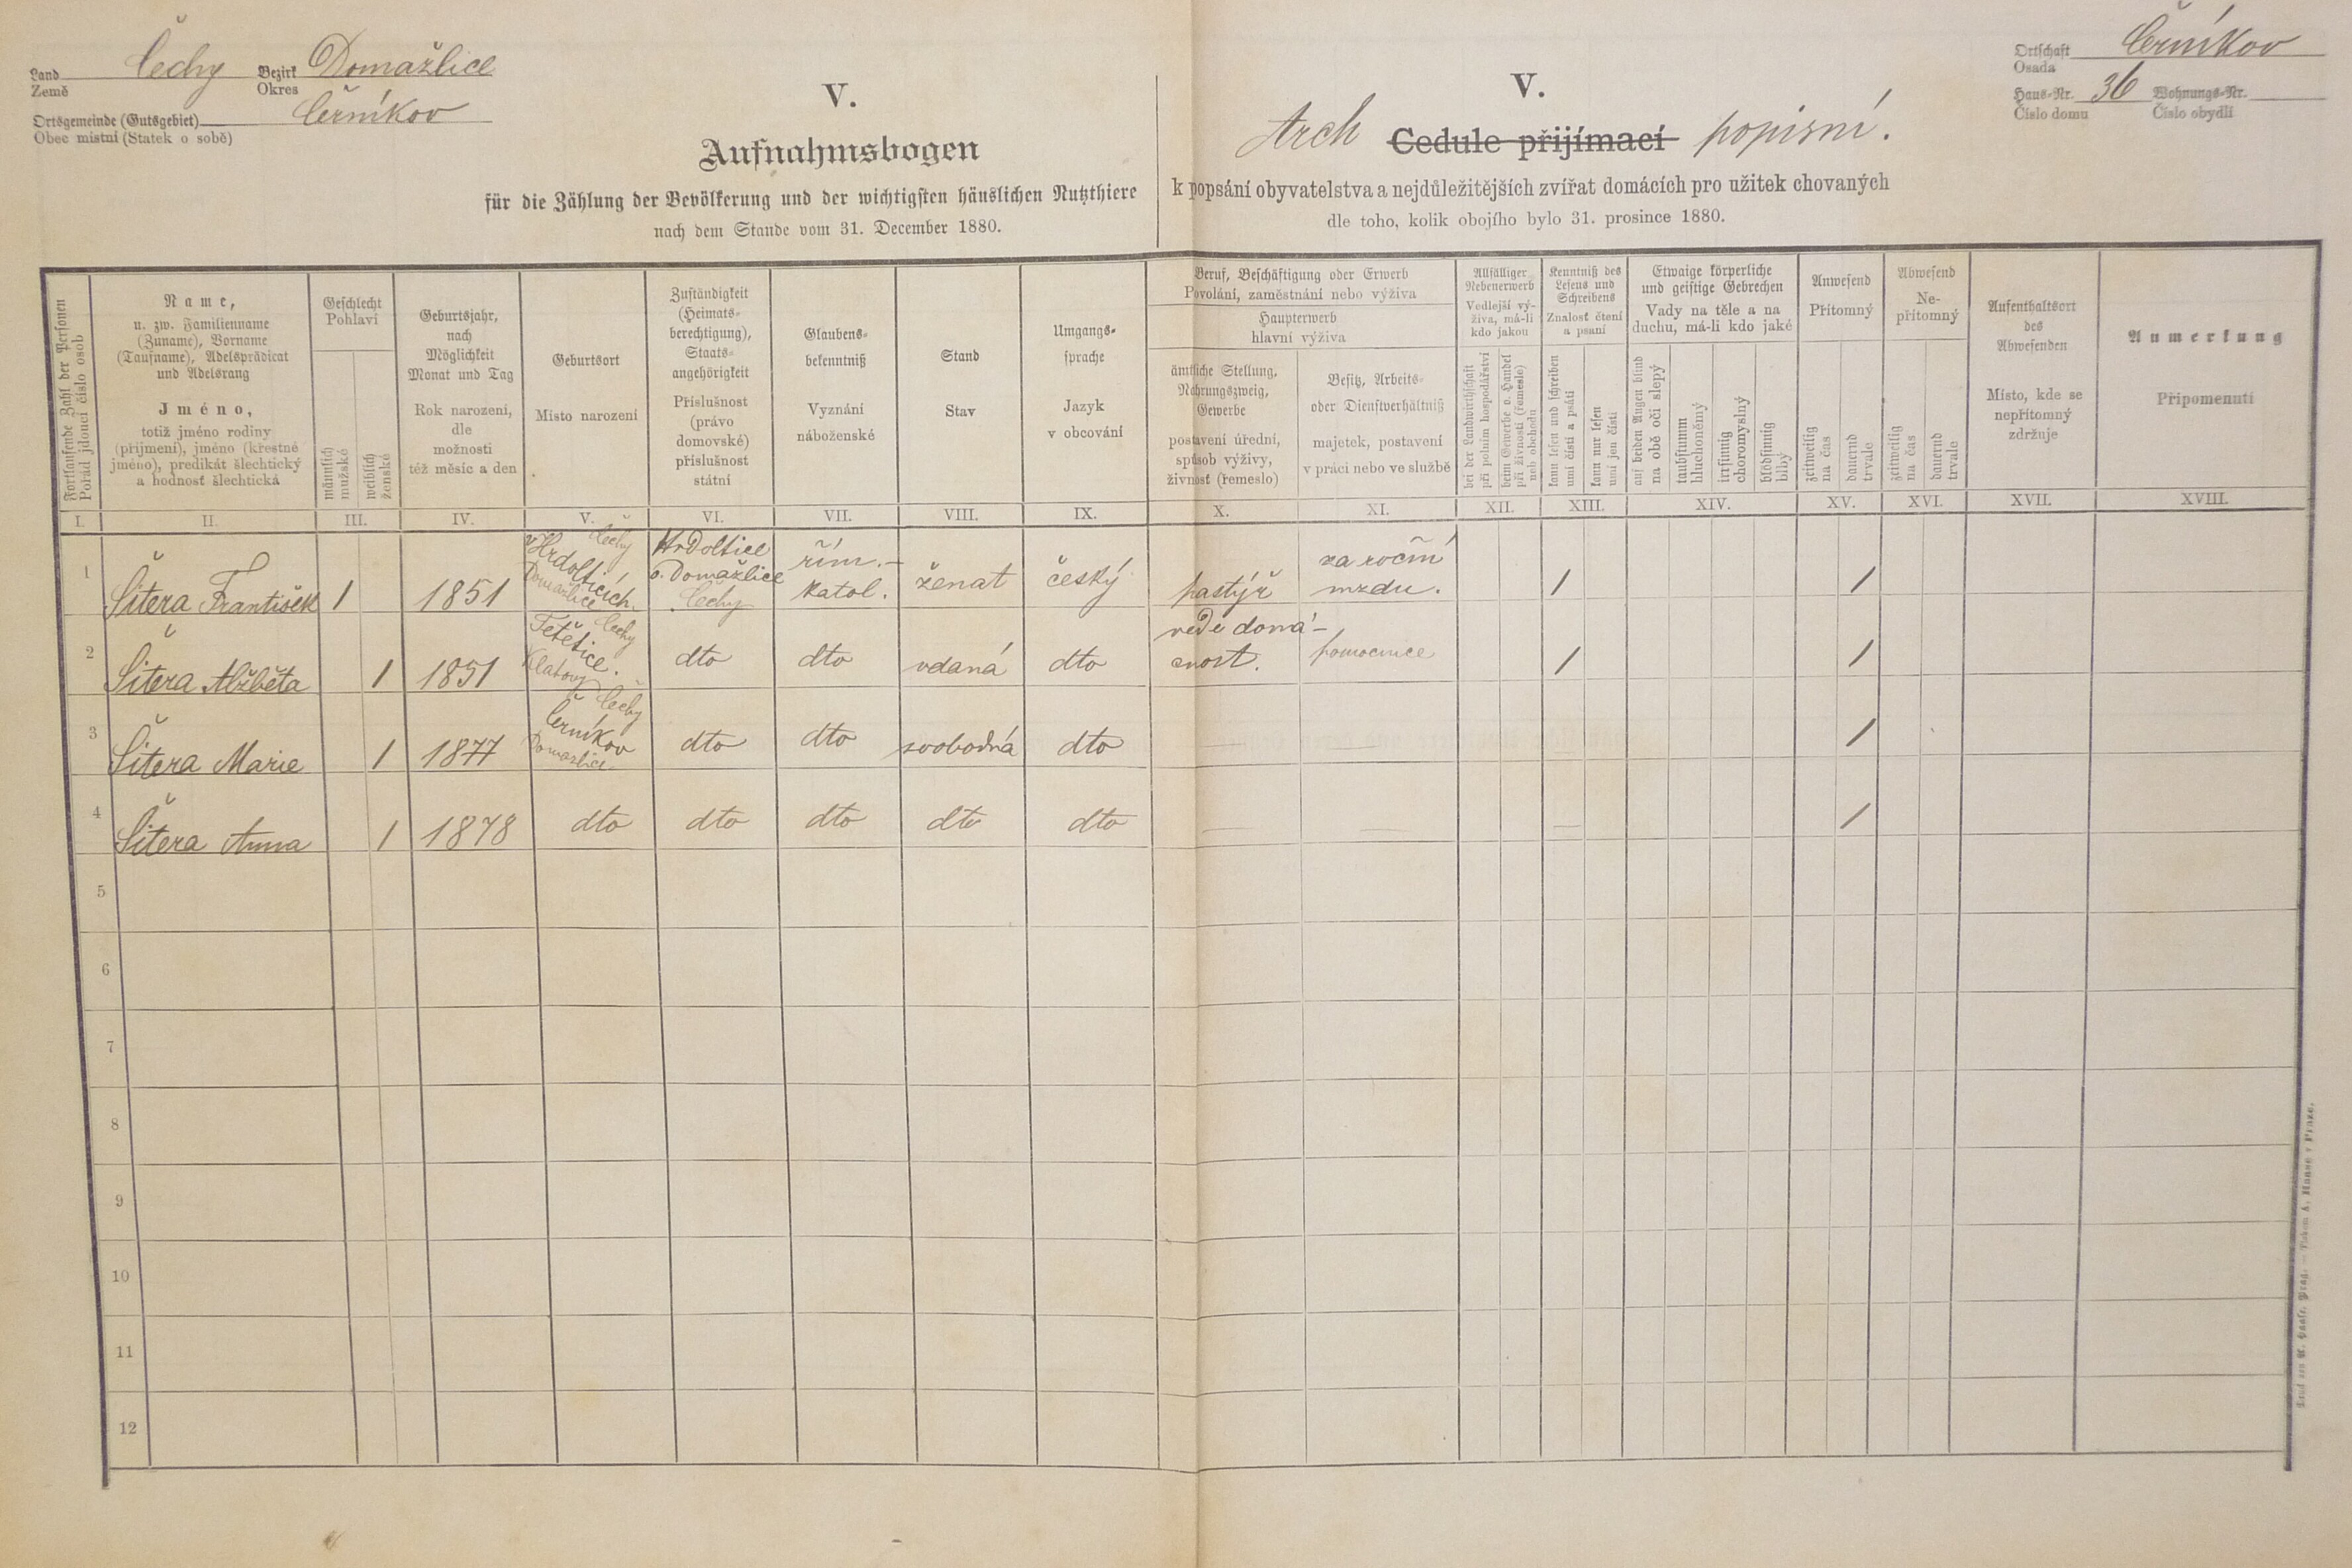 Land Čechy Bezirk Domažlice
Země Okres
Ortsgemeinde (Gutsgebiet) Černíkov
Obec místní (Statek o sobě)
V.
Aufnahmsbogen
für die Zählung der Bevölkerung und der wichtigsten häuslichen Nutzthiere
nach dem Stande vom 31. December 1880.
V.
Arch Cedule přijímací popisní.
k popsání obyvatelstva a nejdůležitějších zvířat domácích pro užitek chovaných
dle toho, kolik obojího bylo 31. prosince 1880.
Ortschaft Černíkov
Osada
Haus-Nr. 36 Wohnungs-Nr.
Číslo domu Číslo obydlí
Fortlaufende Zahl der Personen
Pořád jdoucí číslo osob
Name,
u. zw. Familienname
(Zuname), Vorname
(Taufname), Adelsprädicat
und Adelsrang
Jméno,
totiž jméno rodiny
(příjmení), jméno (křestné
jméno), predikát šlechtický
a hodnosť šlechtická
Geschlecht
Pohlaví
männlich
mužské
weiblich
ženské
Geburtsjahr,
nach
Möglichkeit
Monat und Tag
Rok narození,
dle
možnosti
též měsíc a den
Geburtsort
Místo narození
Zuständigkeit
(Heimats-
berechtigung),
Staats-
angehörigkeit
Příslušnost
(právo
domovské)
příslušnost
státní
Glaubens-
bekenntniß
Vyznání
náboženské
Stand
Stav
Umgangs-
sprache
Jazyk
v obcování
Beruf, Beschäftigung oder Erwerb
Povolání, zaměstnání nebo výživa
Haupterwerb
hlavní výživa
ämtliche Stellung,
Nahrungszweig,
Gewerbe
postavení úřední,
spůsob výživy,
živnosť (řemeslo)
Besitz, Arbeits-
oder Dienstverhältniß
majetek, postavení
v práci nebo ve službě
Allfälliger
Nebenerwerb
Vedlejší vý-
živa, má-li
kdo jakou
bei der Landwirthschaft
při polním hospodářství
beim Gewerbe o. Handel
při živnosti (řemesle)
neb obchodu
Kenntniß des
Lesens und
Schreibens
Znalosť čtení
a psaní
kann lesen und schreiben
umí čísti a psáti
kann nur lesen
umí jen čísti
Etwaige körperliche
und geistige Gebrechen
Vady na těle a na
duchu, má-li kdo jaké
auf beiden Augen blind
na obě oči slepý
taubstumm
hluchoněmý
irrsinnig
choromyslný
blödsinnig
blbý
Anwesend
Přítomný
zeitweilig
na čas
dauernd
trvale
Abwesend
Ne-
přítomný
zeitweilig
na čas
dauernd
trvale
Aufenthaltsort
des
Abwesenden
Místo, kde se
nepřítomný
zdržuje
Anmerkung
Připomenutí
I. II. III. IV. V. VI. VII. VIII. IX. X. XI. XII. XIII. XIV. XV. XVI. XVII. XVIII.
1 Šitera František 1 1851
Čechy
v Hrdolticích
Domažlice
Hrdoltice
o. Domažlice
Čechy
řím.-
katol.
ženat český pastýř
za roční
mzdu.
/ /
2 Šitera Alžběta 1 1851
Čechy
Tětětice.
Klatovy
dto dto vdaná dto
vede domá-
cnost.
pomocnice / /
3 Šitera Marie 1 1877
Čechy
Černíkov
Domažlice
dto dto svobodná dto — — — /
4 Šitera Anna 1 1878 dto dto dto dto dto — — — /
5
6
7
8
9
10
11
12